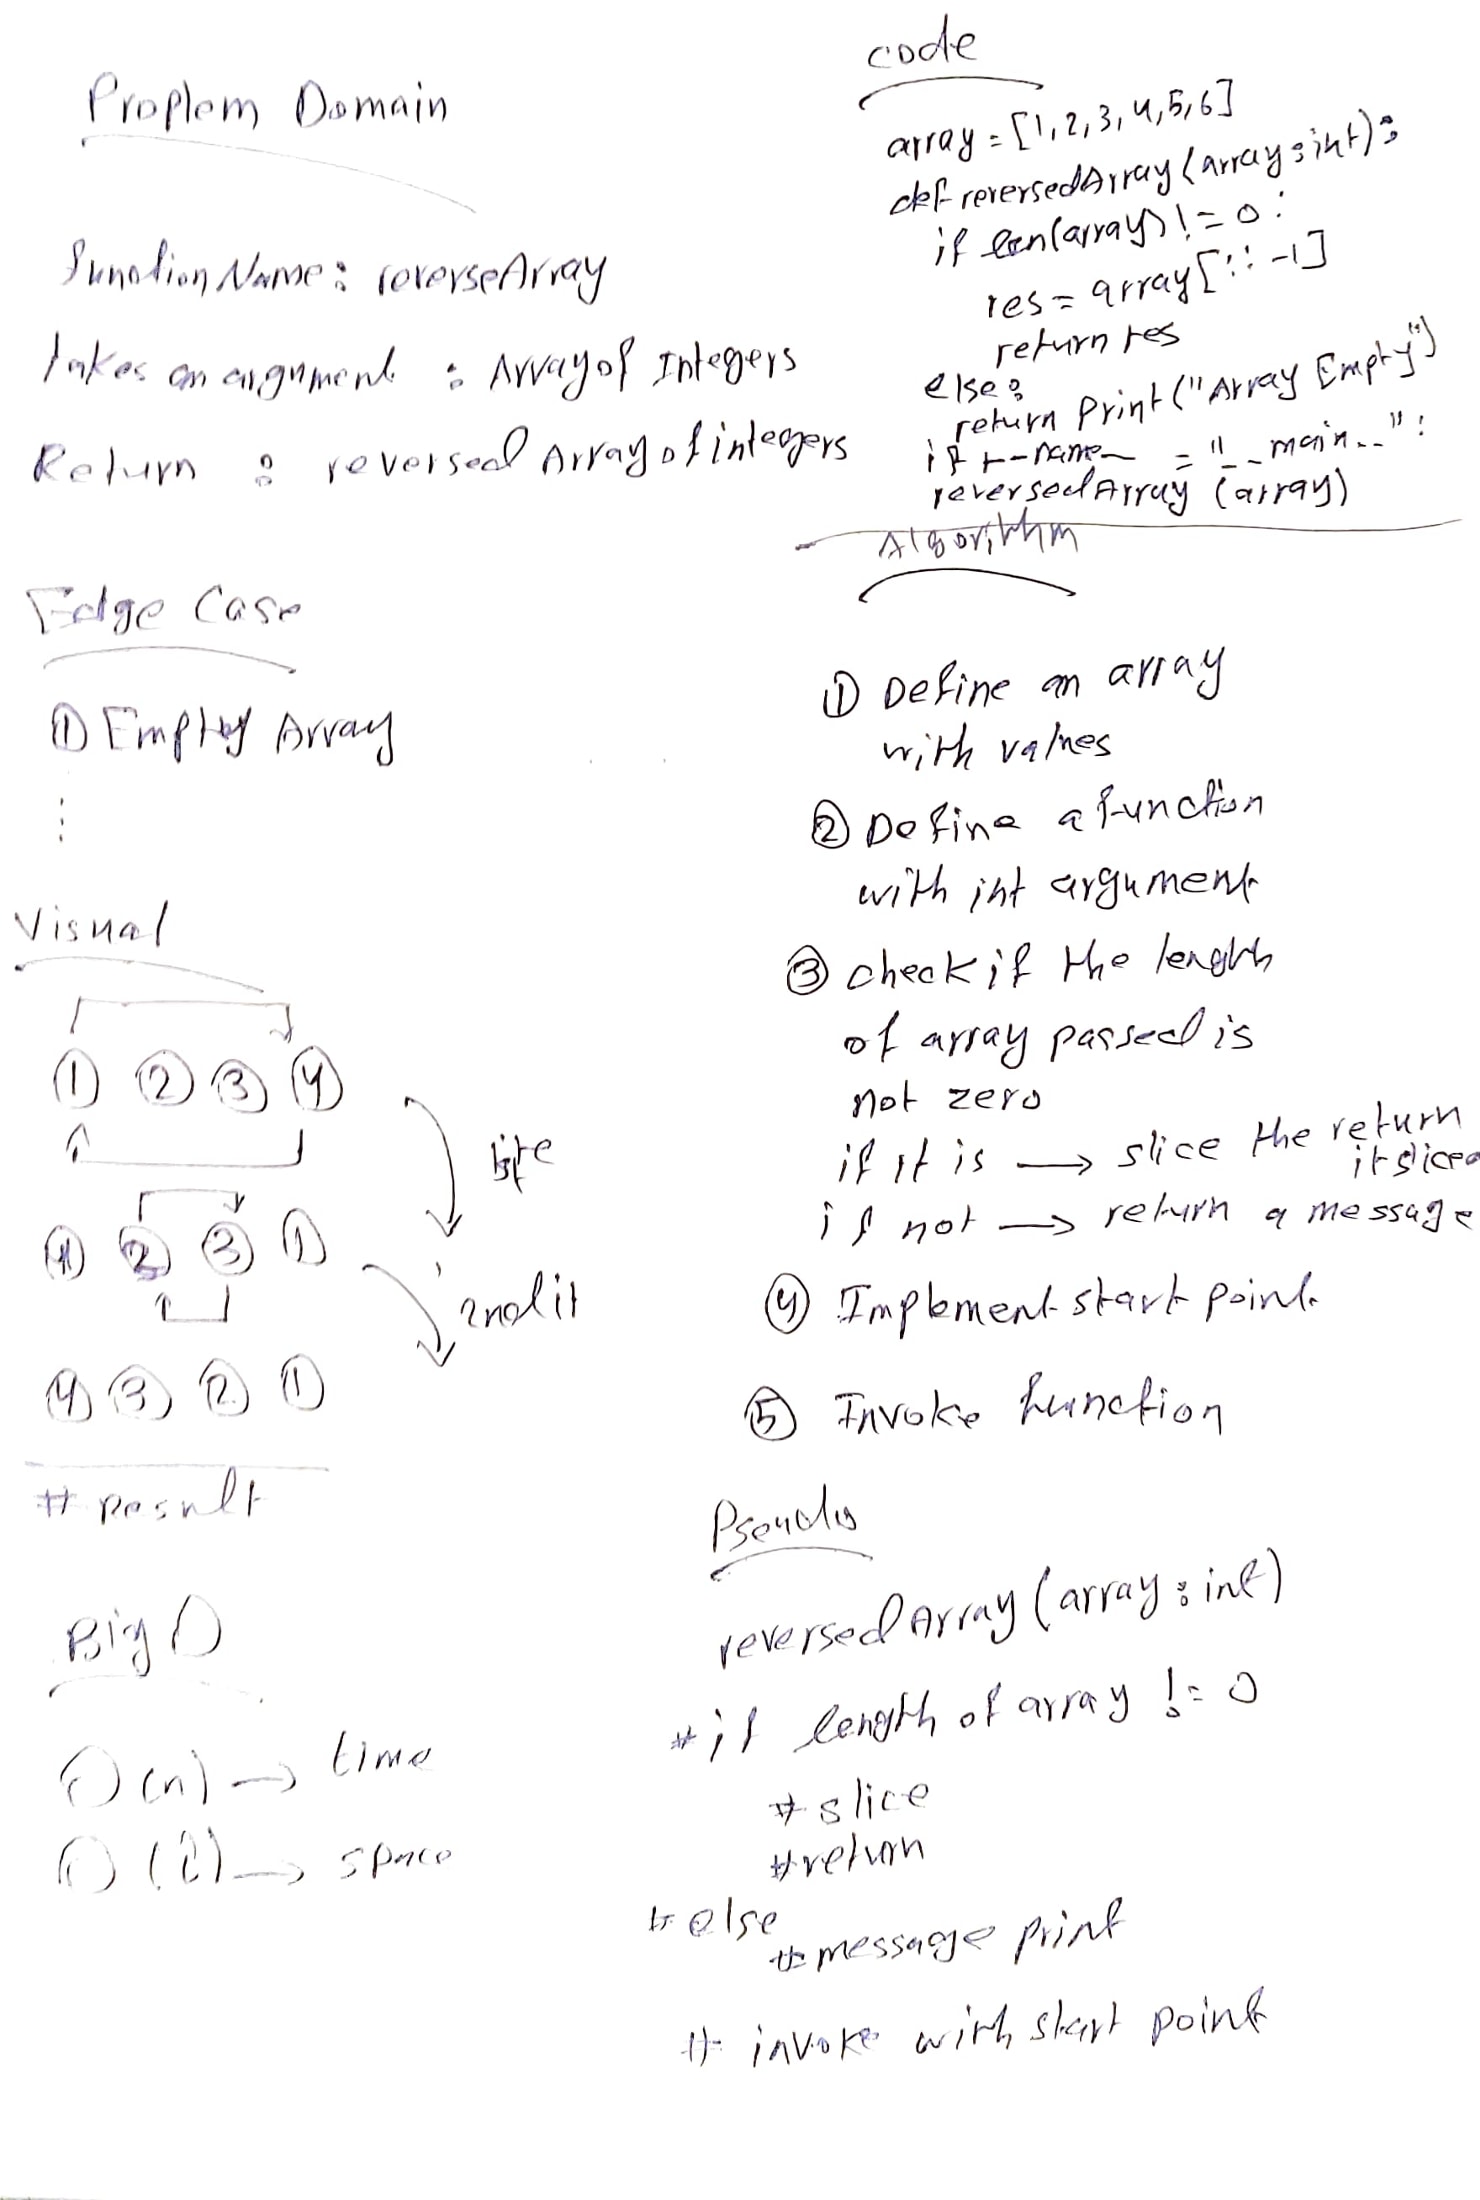 Proplem Domain
function Name: reverseArray
takes an argument : Array of Integers
Return : reversed Array of integers
Edge Case
① Empty Array
Visual
① ② ③ ④
④ ② ③ ①
2nd it
④ ③ ② ①
# Result
Big O
O(n) → time
→ space
code
array = [1,2,3,4,5,6]
def reversedArray(array:int):
if len(array) != 0:
res = array[::-1]
return res
else:
return Print("Array Empty")
if __name__ = "__main__":
reversedArray (array)
Algorithm
① Define an array
with values
② Define a function
with int argument
③ check if the length
of array passed is
not zero
if it is → slice the return
it sliced
if not → return a message
④ Implement start point
⑤ Invoke function
Pseudo
reversedArray(array:int)
#if length of array != 0
#slice
#return
#else
#message print
# invoke with start point